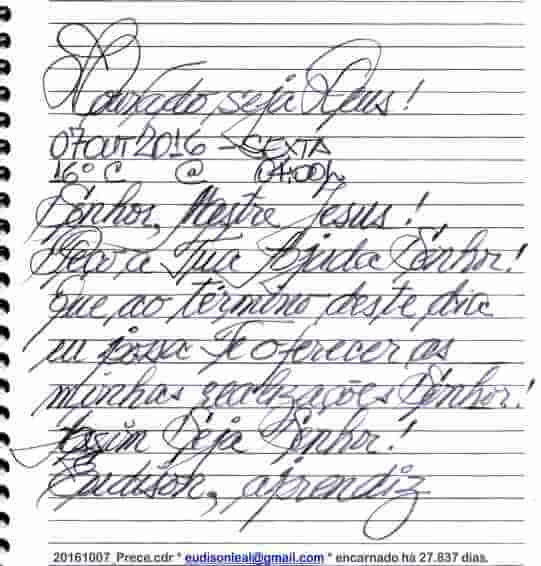 Louvado seja Deus!
07OUT2016 - SEXTA
16° C @ 04:00h
Senhor, Mestre Jesus!
Peço a Tua Ajuda Senhor!
Que ao término deste dia
eu possa Te oferecer as
minhas realizações Senhor!
Assim Seja Senhor!
Eudison, aprendiz
20161007_Prece.cdr * eudisonleal@gmail.com * encarnado há 27.837 dias.